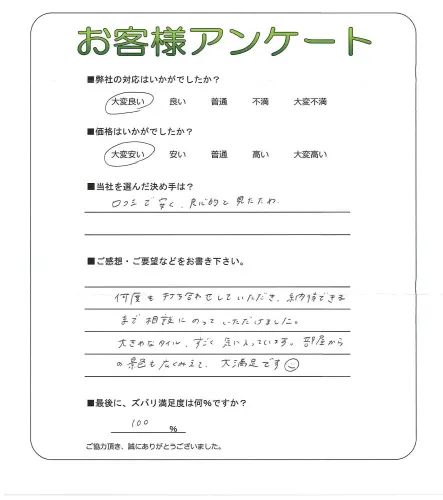 お客様アンケート
■弊社の対応はいかがでしたか？
大変良い 良い 普通 不満 大変不満
■価格はいかがでしたか？
大変安い 安い 普通 高い 大変高い
■当社を選んだ決め手は？
口コミで安く、良心的と見たため
■ご感想・ご要望などをお書き下さい。
何度も打ち合わせしていただき、納得できる
まで相談にのっていただけました。
大きめなタイル、すごく気に入っています。部屋から
の景色も広くみえて、大満足です
■最後に、ズバリ満足度は何%ですか？
100 %
ご協力頂き、誠にありがとうございました。